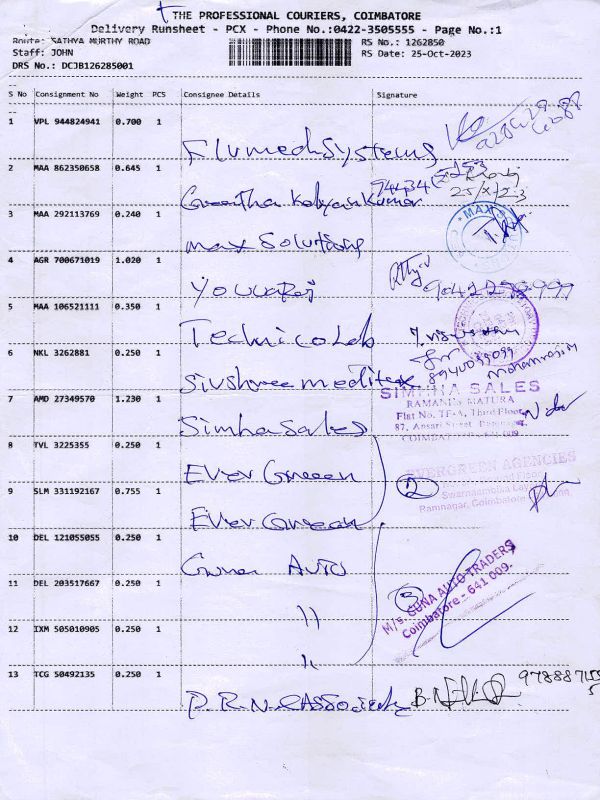 THE PROFESSIONAL COURIERS, COIMBATORE
Delivery Runsheet - PCX - Phone No.:0422-3505555 - Page No.:1
Route: SATHYA MURTHY ROAD RS No.: 1262850
Staff: JOHN RS Date: 25-Oct-2023
DRS No.: DCJB126285001
S No Consignment No Weight PCS Consignee Details Signature
1 VPL 944824941 0.700 1
Flumech Systems
2 MAA 862350658 0.645 1
Geetha Kalyan Kumar 25/X/23
3 MAA 292113769 0.240 1
max Solutions MAX
4 AGR 700671019 1.020 1
Youvaraj
5 MAA 106521111 0.350 1
Technico Lab
6 NKL 3262881 0.250 1
Sivshree meditex 8940039099
7 AMD 27349570 1.230 1
SIMHHA SALES
Flat No. TF-A, Third Floor
87, Ansari Street
Simha Sales
8 TVL 3225355 0.250 1
Ever Green
EVERGREEN AGENCIES
2
Ramnagar, Coimbatore
9 SLM 331192167 0.755 1
Ever Green
10 DEL 121055055 0.250 1
Guna AUTO
M/s. GUNA AUTO TRADERS
Coimbatore - 641 009.
3
11 DEL 203517667 0.250 1
"
12 IXM 505010905 0.250 1
"
13 TCG 50492135 0.250 1
P.R.N. Associates